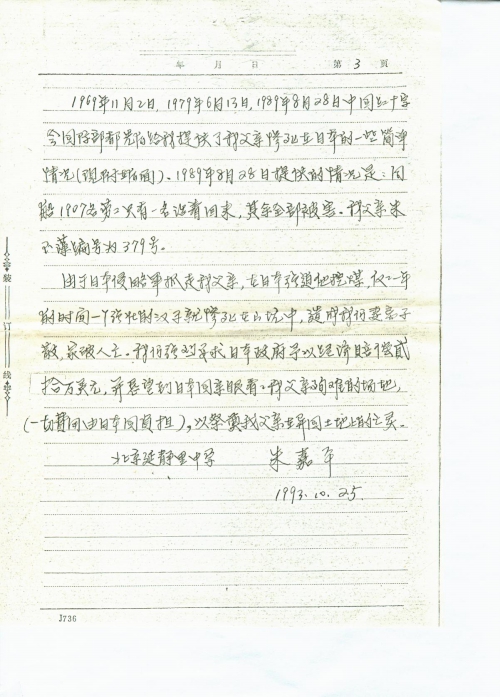 年 月 日 第 3 页
1969年11月2日，1979年6月13日，1989年8月28日中国红十字
会国际部都先后给我提供了我父亲惨死在日本的一些简单
情况（现附后面）。1989年8月28日提供的情况是：同
船1907名劳工只有一名活着回来，其余全部被害。我父亲朱
玉藻编号为379号。
由于日本侵略军抓走我父亲，在日本强迫他挖煤，仅一年
的时间一个强壮的汉子就惨死在山坑中，造成我们妻离子
散，家破人亡。我们强烈要求日本政府予以经济赔偿贰
拾万美元，并希望到日本国亲眼看看我父亲殉难的场地，
（一切费用由日本国负担），以祭奠我父亲在异国土地上的亡灵。
北京延静里中学 朱嘉平
1993.10.25.
装
订
线
J736